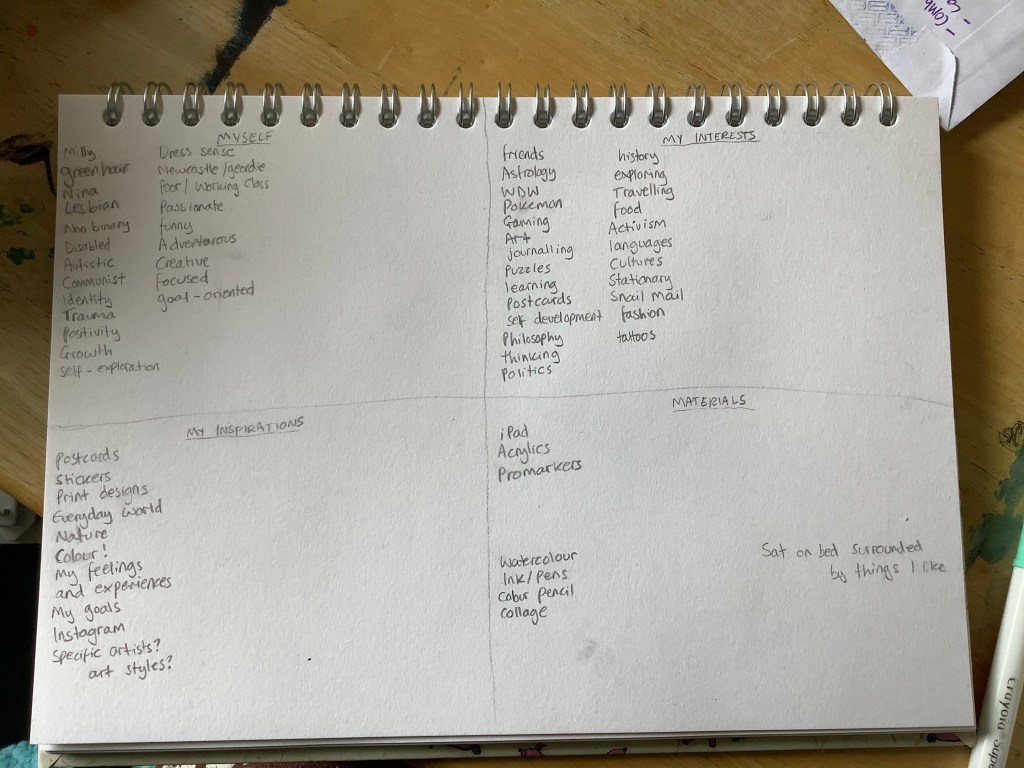 - Comb
MYSELF
Milly
green hair
Nina
Lesbian
Non binary
Disabled
Autistic
Communist
Identity
Trauma
Positivity
Growth
self-exploration
Dress sense
Newcastle/geordie
Poor/Working Class
Passionate
funny
Adventurous
Creative
Focused
goal-oriented
MY INTERESTS
friends
Astrology
WDW
Pokemon
Gaming
Art
journalling
Puzzles
learning
Postcards
self development
Philosophy
thinking
Politics
history
exploring
Travelling
food
Activism
languages
Cultures
Stationary
Snail mail
fashion
tattoos
MY INSPIRATIONS
Postcards
Stickers
Print designs
Everyday world
Nature
Colour!
My feelings
and experiences
My goals
Instagram
Specific artists?
art styles?
MATERIALS
iPad
Acrylics
Promarkers
Watercolour
Ink/Pens
Colour pencil
Collage
Sat on bed surrounded
by things I like
Crayola Supe